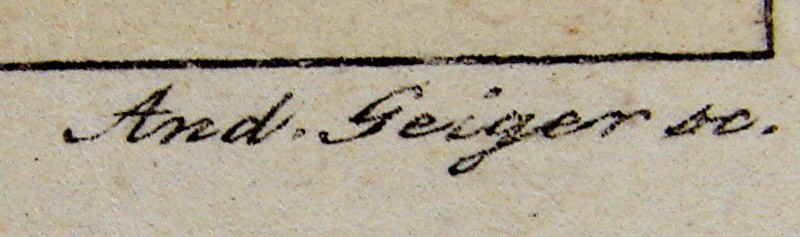 And. Geiger sc.